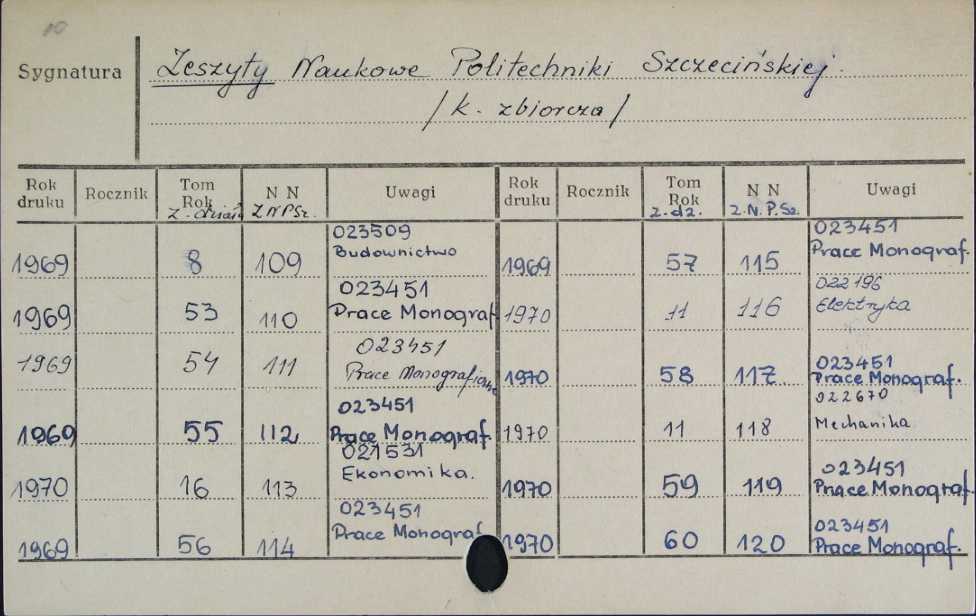 10
Sygnatura Zeszyty Naukowe Politechniki Szczecińskiej.
/k. zbiorcza/
Rok druku Rocznik Tom Rok z. działu N N ZNPSz. Uwagi
1969 8 109 023509 Budownictwo
1969 53 110 023451 Prace Monograf.
1969 54 111 023451 Prace Monograficzne
1969 55 112 023451 Prace Monograf.
1970 16 113 021531 Ekonomika.
1969 56 114 023451 Prace Monograf
Rok druku Rocznik Tom Rok z. dz. N N Z.N.P.Sz. Uwagi
1969 57 115 023451 Prace Monograf.
1970 11 116 022196 Elektryka
1970 58 117 023451 Prace Monograf.
1970 11 118 022670 Mechanika
1970 59 119 023451 Prace Monograf.
1970 60 120 023451 Prace Monograf.